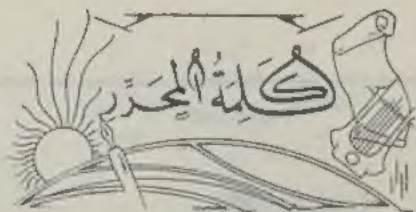 كَلِمَةُ المحَرِّر